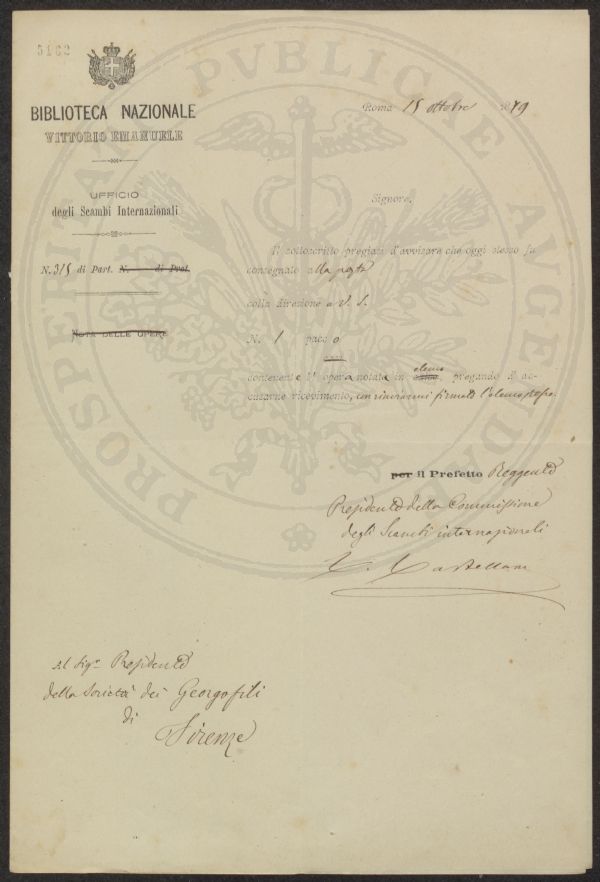 5162
BIBLIOTECA NAZIONALE
VITTORIO EMANUELE
UFFICIO
degli Scambi Internazionali
N. 315 di Part. N. di Prot.
NOTA DELLE OPERE
Roma 15 ottobre 1879
Signore,
Il sottoscritto pregiasi d'avvisare che oggi stesso fu
consegnato alla posta
colla direzione a V. S.
N. 1 pacco
contenente l'opera notata in elenco pregando d'ac-
cusarne ricevimento, con rinviarmi firmato l'elenco stesso.
per il Prefetto Reggente
Presidente della Commissione
degli Scambi internazionali
C. Castellani
Al Sigr Presidente
della Società dei Georgofili
di
Firenze
PROSPERITATI PUBLICAE AUGENDAE